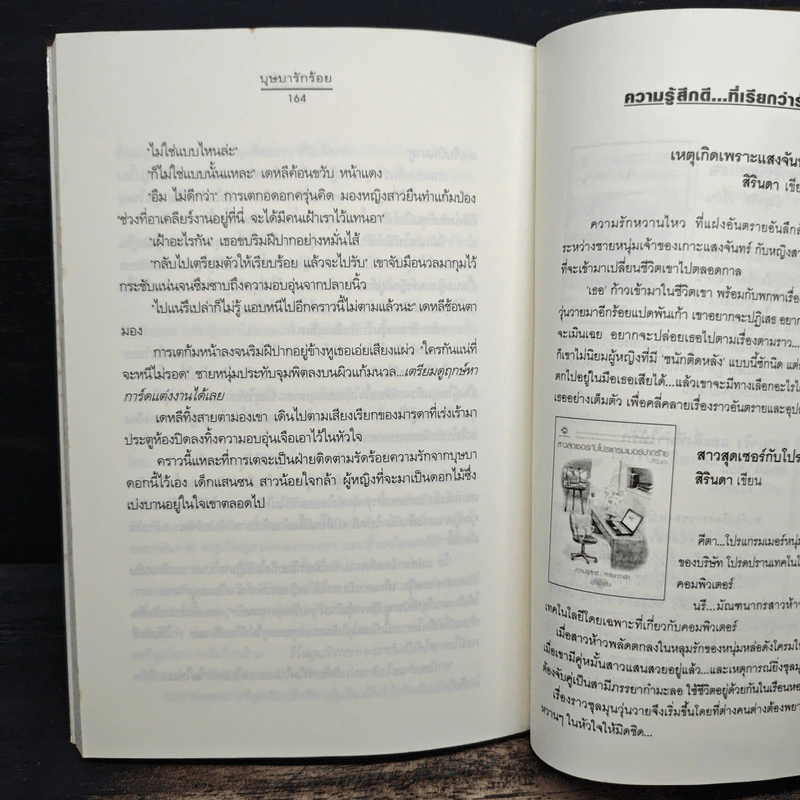 บุษบารักร้อย
164
"ไม่ใช่แบบไหนล่ะ"
"ก็ไม่ใช่แบบนั้นแหละ" เดหลีค้อนขวับ หน้าแดง
"อืม ไม่ดีกว่า" การเตกอดอกครุ่นคิด มองหญิงสาวยืนทำแก้มป่อง
"ช่วงที่อาเคลียร์งานอยู่ที่นี่ จะได้มีคนเฝ้าเราไว้แทนอา"
"เฝ้าอะไรกัน" เธอขบริมฝีปากอย่างหมั่นไส้
"กลับไปเตรียมตัวให้เรียบร้อย แล้วจะไปรับ" เขาจับมือนวลมากุมไว้
กระชับแน่นจนซึมซาบถึงความอบอุ่นจากปลายนิ้ว
"ไปแน่รึเปล่าก็ไม่รู้ แอบหนีไปอีกคราวนี้ไม่ตามแล้วนะ" เดหลีช้อนตา
มอง
การเตก้มหน้าลงจนริมฝีปากอยู่ข้างหูเธอเอ่ยเสียงแผ่ว "ใครกันแน่ที่
จะหนีไม่รอด" ชายหนุ่มประทับจุมพิตลงบนผิวแก้มนวล...เตรียมดูฤกษ์หา
การ์ดแต่งงานได้เลย
เดหลีทิ้งสายตามองเขา เดินไปตามเสียงเรียกของมารดาที่เร่งเร้ามา
ประตูห้องปิดลงทิ้งความอบอุ่นเจือเอาไว้ในหัวใจ
คราวนี้แหละที่การเตจะเป็นฝ่ายติดตามรัดร้อยความรักจากบุษบา
ดอกนี้ไว้เอง เด็กแสนซน สาวน้อยใจกล้า ผู้หญิงที่จะมาเป็นดอกไม้ซึ่ง
เบ่งบานอยู่ในใจเขาตลอดไป
ความรู้สึกดี...ที่เรียกว่า
เหตุเกิดเพราะแสงจัน
สิรินดา เขีย
ความรักหวานไหว ที่แฝงอันตรายอันลึก
ระหว่างชายหนุ่มเจ้าของเกาะแสงจันทร์ กับหญิง
ที่จะเข้ามาเปลี่ยนชีวิตเขาไปตลอดกาล
'เธอ' ก้าวเข้ามาในชีวิตเขา พร้อมกับพกพาเรื่อง
วุ่นวายมาอีกร้อยแปดพันเก้า เขาอยากจะปฏิเสธ อยาก
จะเมินเฉย อยากจะปล่อยเธอไปตามเรื่องตามราว...
ก็เขาไม่นิยมผู้หญิงที่มี 'ชนักติดหลัง' แบบนี้ซักนิด แต่
ตกไปอยู่ในมือเธอเสียได้...แล้วเขาจะมีทางเลือกอะไร
เธออย่างเต็มตัว เพื่อคลี่คลายเรื่องราวอันตรายและ
สาวสุดเซอร์กับโปรแกรมเมอร์ปากร้าย
สิรินดา
สาวสุดเซอร์กับโปร
สิรินดา เขียน
คีตา...โปรแกรมเมอร์หนุ่ม
ของบริษัท โปรดปรานเทคโนโ
คอมพิวเตอร์
นรี...มัณฑนากรสาวห้าว
เทคโนโลยีโดยเฉพาะที่เกี่ยวกับคอมพิวเตอร์
เมื่อสาวห้าวพลัดตกลงในหลุมรักของหนุ่มหล่อดังโครมใหญ่
เมื่อเขามีคู่หมั้นสาวแสนสวยอยู่แล้ว...และเหตุการณ์ยิ่งชุลมุน
ต้องจับคู่เป็นสามีภรรยากำมะลอ ใช้ชีวิตอยู่ด้วยกันในเรือนหอ
เรื่องราวชุลมุนวุ่นวายจึงเริ่มขึ้นโดยที่ต่างคนต่างต้องพยา
หวานๆ ในหัวใจให้มิดชิด...